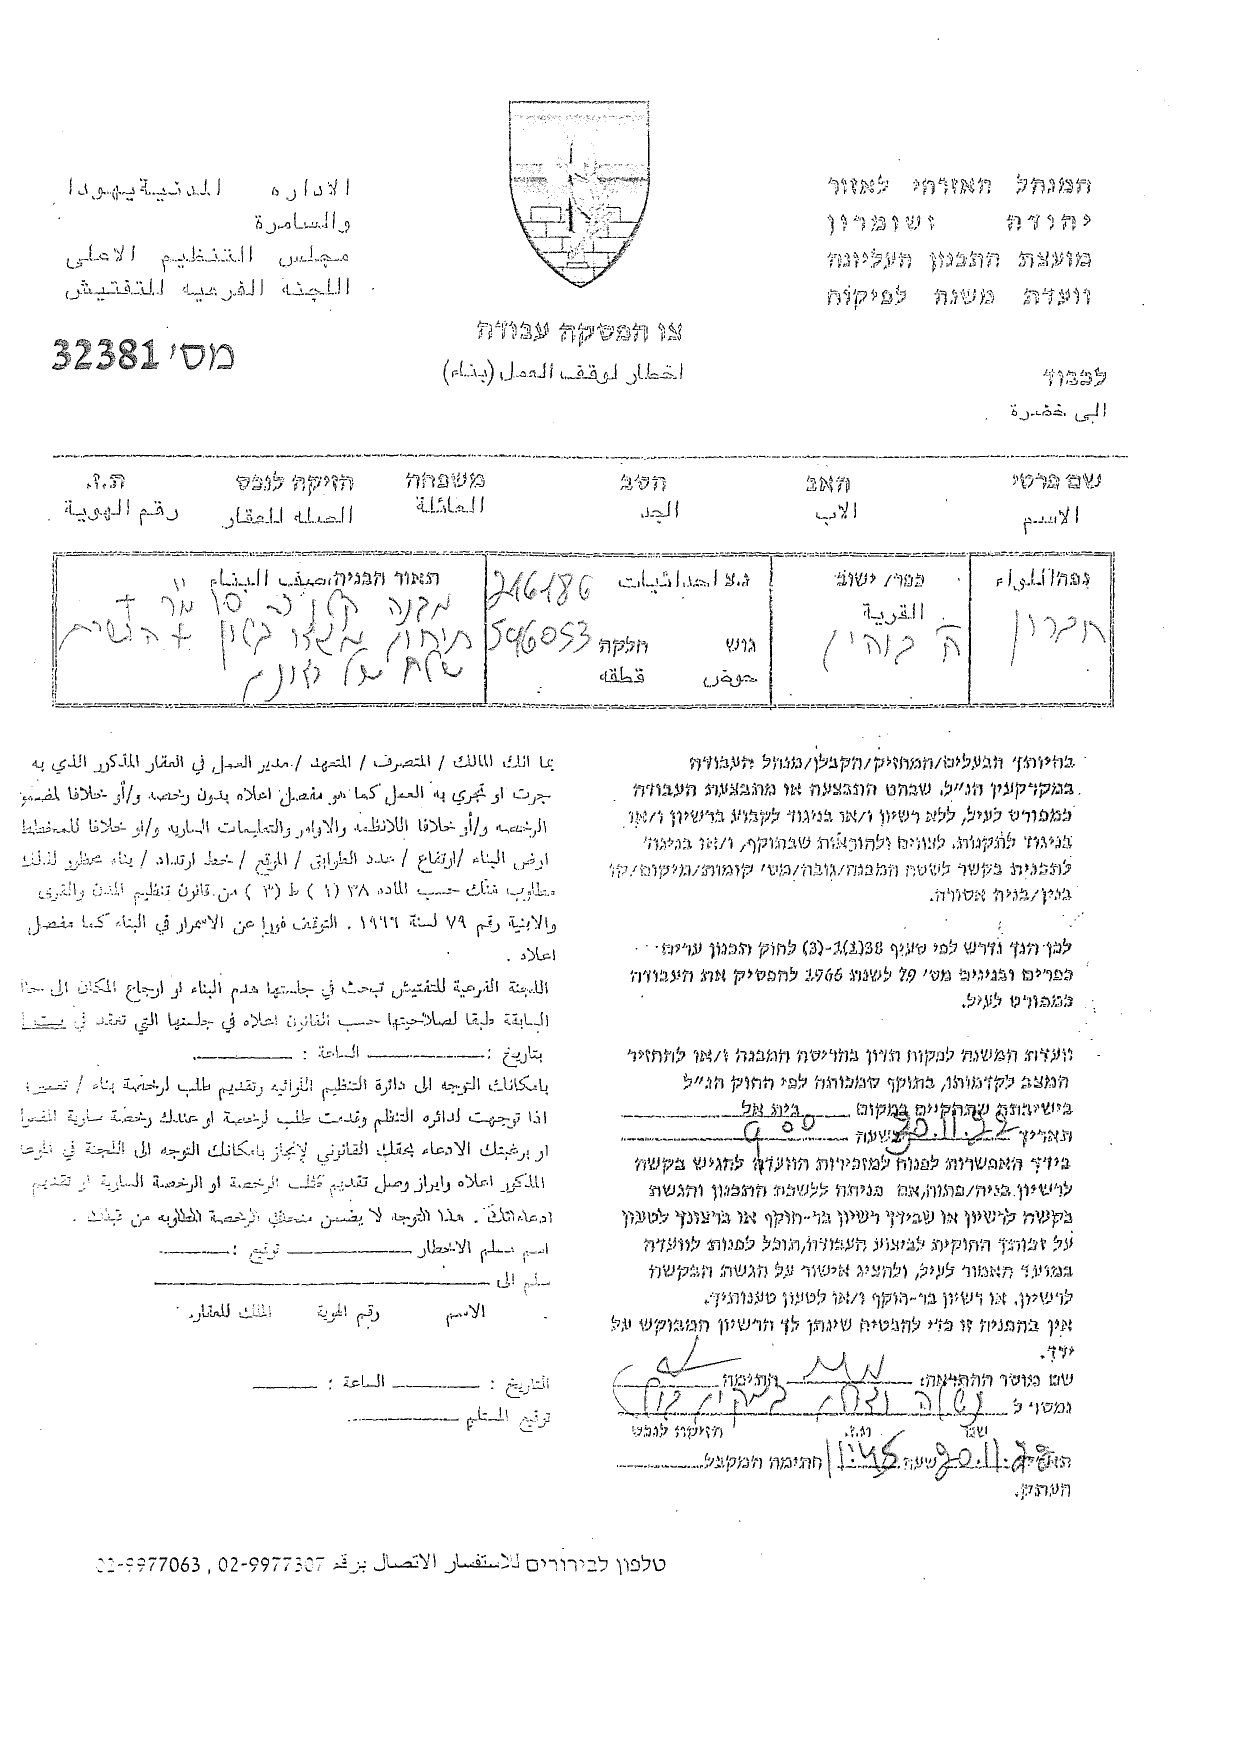 המנהל האזרחי לאזור
יהודה ושומרון
מועצת התכנון העליונה
וועדת משנה לפיקוח
الاداره المدنية يهودا
والسامرة
مجلس التنظيم الاعلى
اللجنة الفرعيه للتفتيش
צו הפסקת עבודה
اخطار لوقف العمل (بناء)
מס' 32381
לכבוד
الى حضرة
שם פרטי האב הסב משפחה הזיקה לנכס ת.ז.
الاسم الاب الجد العائلة الصله للعقار رقم الهوية
נפה/اللواء
חברון
כפר/ ישוב
القرية
נ.צ احداثيات 216186
596053
גוש חלקה
حوض قطعه
תאור הבניה/صيف البناء
בהיותך הבעלים/המחזיק/הקבלן/מנהל העבודה
במקרקעין הנ"ל, שבהם התבצעה או מתבצעת העבודה
כמפורט לעיל, ללא רשיון ו/או בניגוד לקבוע ברשיון ו/או
בניגוד לתקנות, לצווים ולהוראות שבתוקף, ו/או בניגוד
לתכנית בקשר לשטח המבנה/גובה/מס' קומות/מיקום/קו
בנין/בניה אסורה.
לכן הנך נדרש לפי סעיף 38(1)-(3) לחוק תכנון ערים
כפרים ובניינים מס' 79 לשנת 1966 להפסיק את העבודה
כמפורט לעיל.
וועדת המשנה לפקוח תדון בהריסת המבנה ו/או להחזיר
המצב לקדמותו, בתוקף סמכותה לפי החוק הנ"ל
בישיבתה שתתקיים במקום בית אל
תאריך שעה 9 00
בידך האפשרות לפנות למזכירות הוועדה להגיש בקשה
לרשיון בניה/פתוח, אם פנית ללשכת התכנון והגשת
בקשה לרשיון או שבידך רשיון בר-תוקף או ברצונך לטעון
על זכותך החוקית לביצוע העבודה, תוכל לפנות לוועדה
במועד האמור לעיל, ולהציג אישור על הגשת הבקשה
לרשיון, או רשיון בר-תוקף ו/או לטעון טענותיך.
אין בהפניה זו כדי להבטיח שינתן לך הרשיון המבוקש על
ידך.
שם מוסר ההתראה: חתימה
נמסר ל
שם ת.ז. הזיקה לנכס
תאריך שעה 11:45 חתימת המקבל
העתק.
بما انك المالك / المتصرف / المتعهد / مدير العمل في العقار المذكور الذي به
جرت او تجري به العمل كما هو مفصل اعلاه بدون رخصه و/أو خلافا لمضمو
الرخصه و/أو خلافا للانظمه والاوامر والتعليمات الساريه و/او خلافا للمخطط
ارض البناء /ارتفاع / عدد الطوابق / الموقع / خط ارتداد / بناء محظور لذلك
مطلوب منك حسب الماده ٣٨ (١) ط (٣) من قانون تنظيم المدن والقرى
والابنية رقم ٧٩ لسنة ١٩٦٦ . التوقف فورا عن الاسمرار في البناء كما مفصل
اعلاه .
اللجنة الفرعية للتفتيش تبحث في جلستها هدم البناء او ارجاع المكان الى حا
السابقة طبقا لصلاحيتها حسب القانون اعلاه في جلستها التي تعقد في
بتاريخ : الساعة :
بامكانك التوجه الى دائرة التنظيم اللوائيه وتقديم طلب لرخصة بناء / تعمير
اذا توجهت لدائره التنظم وقدمت طلب لرخصة او عندك رخصة سارية المفعوا
او برغبتك الادعاء بحقك القانوني لإنجاز بامكانك التوجه الى اللجنة في الموعا
المذكور اعلاه وابراز وصل تقديم طلب الرخصة او الرخصة السارية او تقديم
ادعاءاتك . هذا التوجه لا يضمن منحك الرخصة المطلوبه من قبلك .
اسم مسلم الاخطار توقيع :
سلم الى
الاسم رقم الهوية الملك للعقار.
التاريخ : الساعة :
توقيع المستلم
טלפון לבירורים للاستفسار الاتصال برقم 02-9977307 , 02-9977063